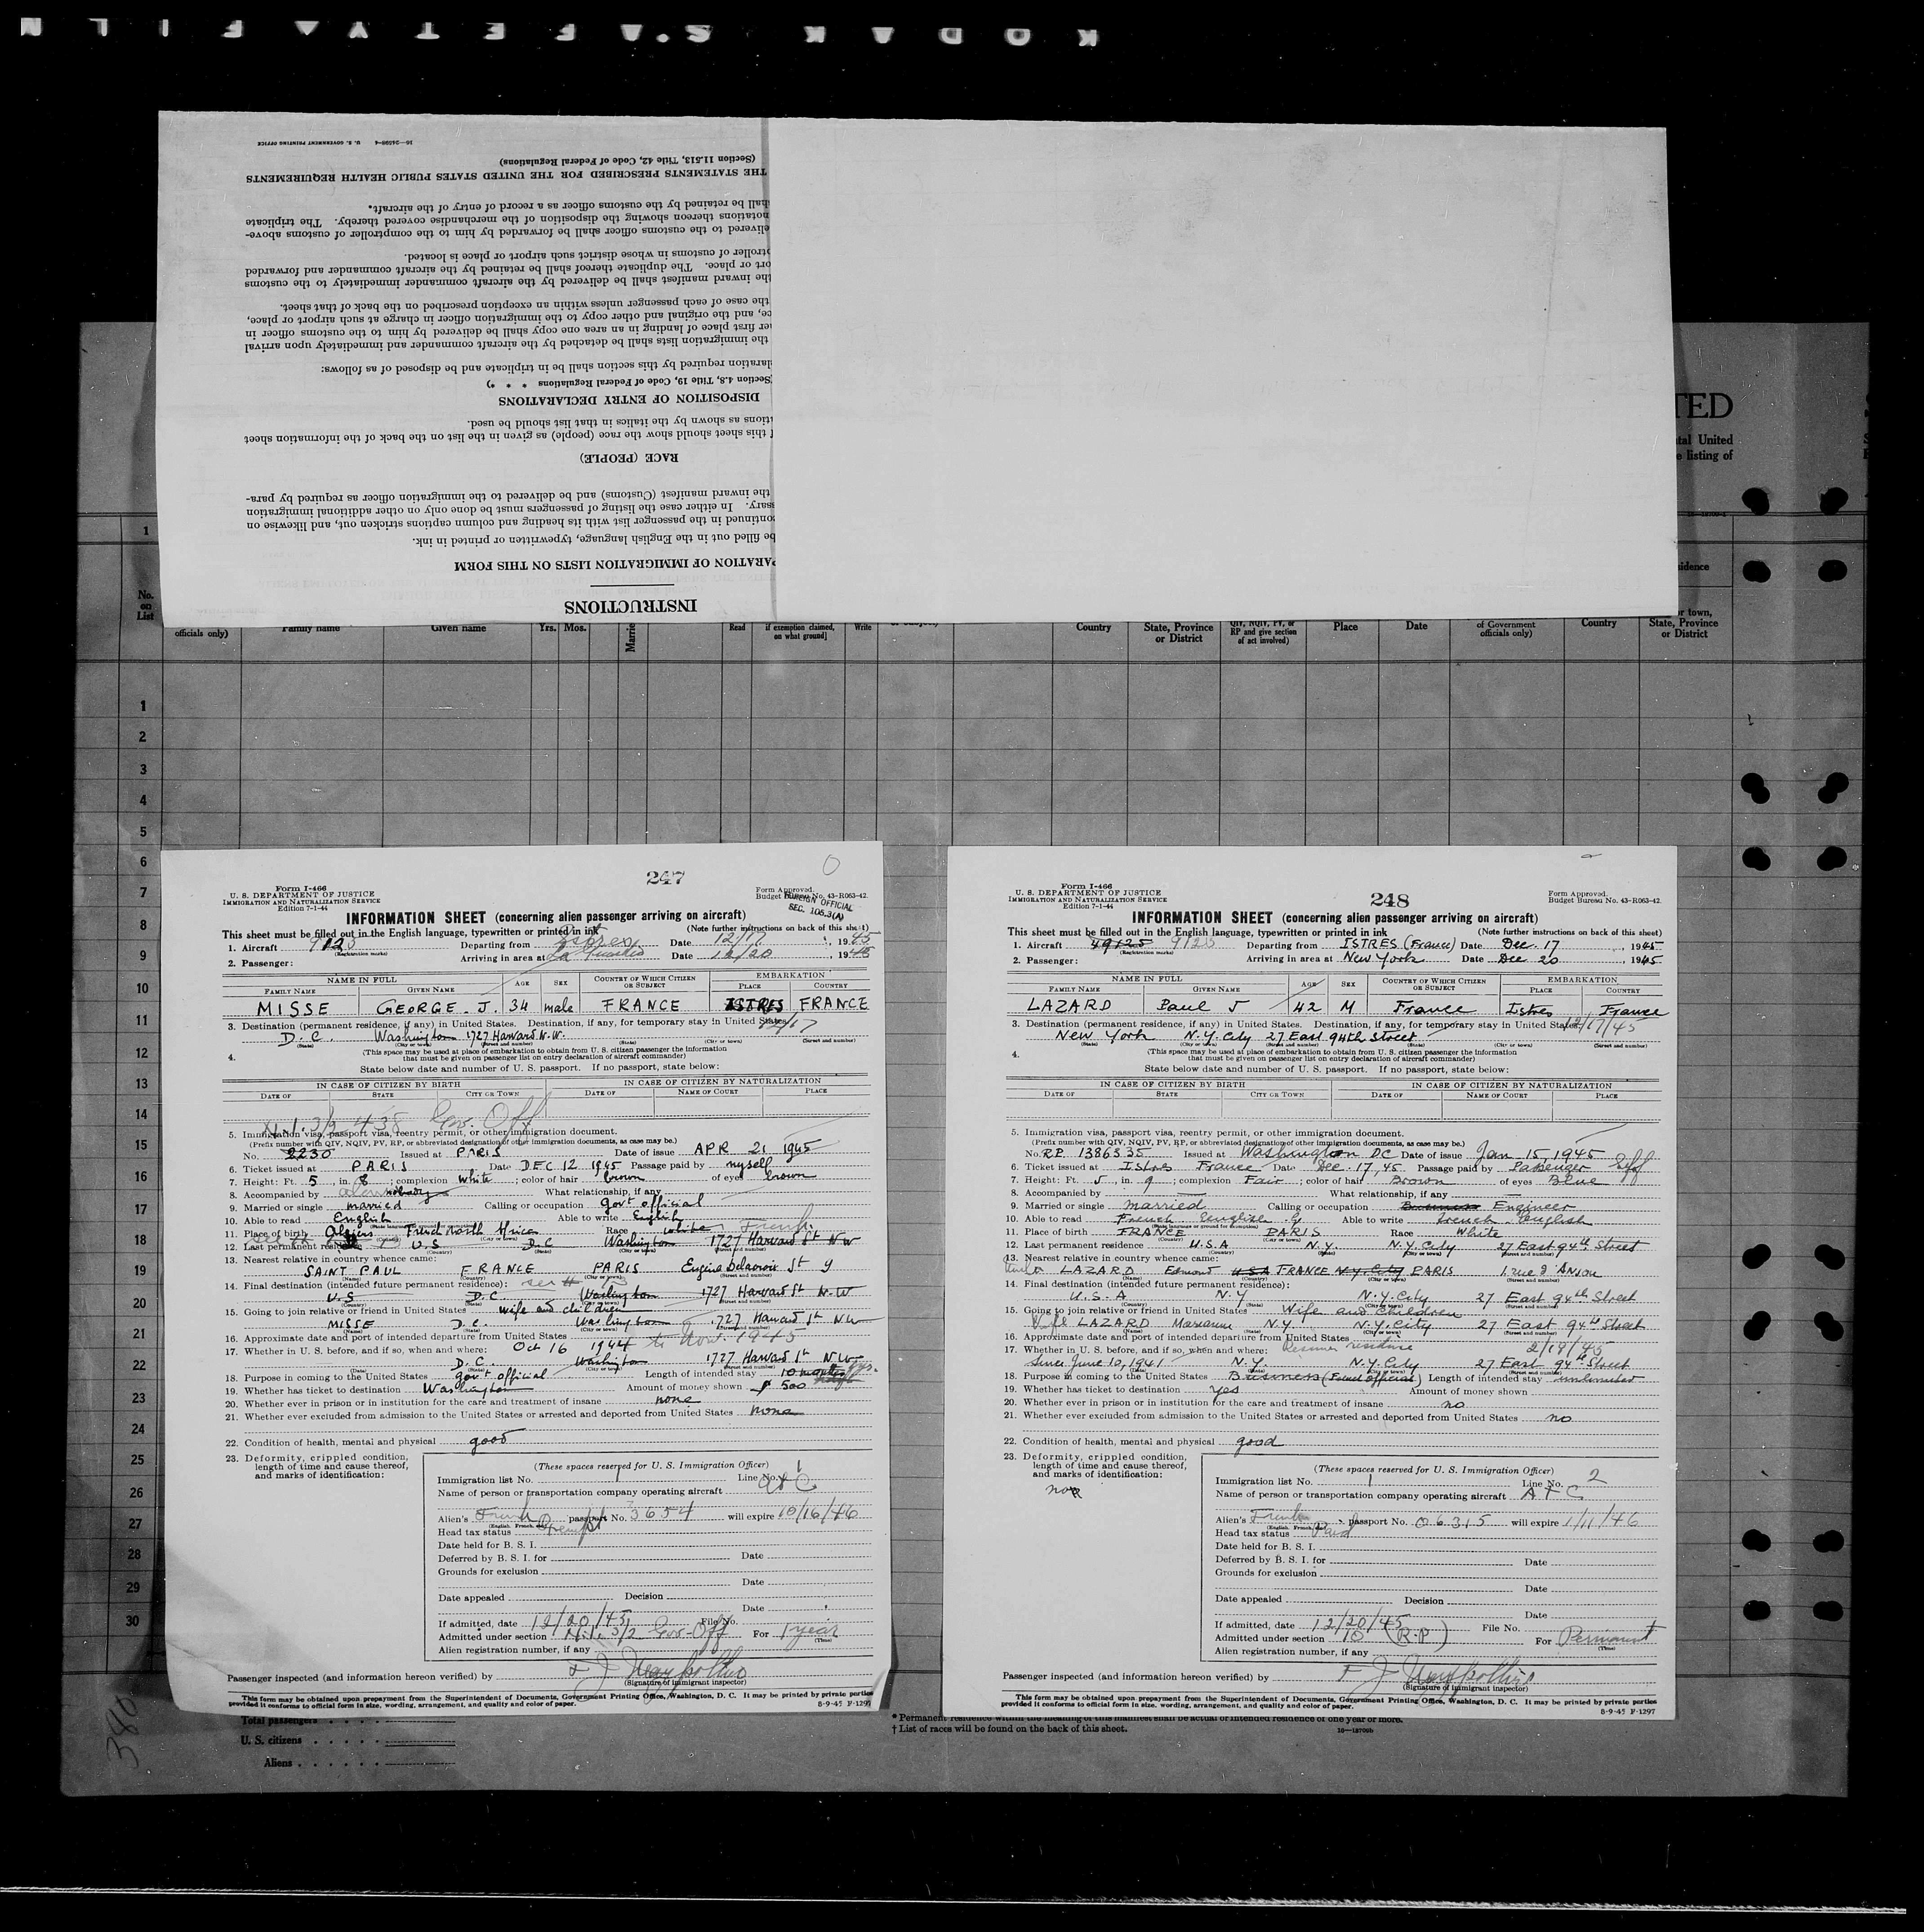 KODAK SAFETY FILM
16—24598-4 U. S. GOVERNMENT PRINTING OFFICE
(Section 11.513, Title 42, Code of Federal Regulations)
THE STATEMENTS PRESCRIBED FOR THE UNITED STATES PUBLIC HEALTH REQUIREMENTS
hall be retained by the customs officer as a record of entry of the aircraft.
notations thereon showing the disposition of the merchandise covered thereby. The triplicate
elivered to the customs officer shall be forwarded by him to the comptroller of customs above-
troller of customs in whose district such airport or place is located.
ort or place. The duplicate thereof shall be retained by the aircraft commander and forwarded
the inward manifest shall be delivered by the aircraft commander immediately to the customs
the case of each passenger unless within an exception prescribed on the back of that sheet.
ce, and the original and other copy to the immigration officer in charge at such airport or place,
er first place of landing in an area one copy shall be delivered by him to the customs officer in
the immigration lists shall be detached by the aircraft commander and immediately upon arrival
laration required by this section shall be in triplicate and be disposed of as follows:
(Section 4.8, Title 19, Code of Federal Regulations * * *)
DISPOSITION OF ENTRY DECLARATIONS
tions as shown by the italics in that list should be used.
f this sheet should show the race (people) as given in the list on the back of the information sheet
RACE (PEOPLE)
the inward manifest (Customs) and be delivered to the immigration officer as required by para-
ssary. In either case the listing of passengers must be done only on other additional immigration
continued in the passenger list with its heading and column captions stricken out, and likewise on
be filled out in the English language, typewritten or printed in ink.
PARATION OF IMMIGRATION LISTS ON THIS FORM
INSTRUCTIONS
TED
tal United
e listing of
1
No. on List
officials only) Family name Given name Yrs. Mos. Marrie Read if exemption claimed, on what ground] Write Country State, Province or District QIV, NQIV, PV, or RP and give section of act involved) Place Date of Government officials only) Country State, Province or District
idence
r town,
1
2
3
4
5
6
7
8
9
10
11
12
13
14
15
16
17
18
19
20
21
22
23
24
25
26
27
28
29
30
247
Form I-466
U. S. DEPARTMENT OF JUSTICE
IMMIGRATION AND NATURALIZATION SERVICE
Edition 7-1-44
Form Approved.
Budget Bureau No. 43-R063-42.
FOREIGN OFFICIAL
SEC. 105.3(A)
INFORMATION SHEET (concerning alien passenger arriving on aircraft)
This sheet must be filled out in the English language, typewritten or printed in ink (Note further instructions on back of this sheet)
1. Aircraft 9125 (Registration marks) Departing from Istres Date 12/17, 1945
2. Passenger: Arriving in area at Date 12/20, 1945
NAME IN FULL AGE SEX COUNTRY OF WHICH CITIZEN OR SUBJECT EMBARKATION
FAMILY NAME GIVEN NAME PLACE COUNTRY
MISSE GEORGE. J. 34 male FRANCE ISTRES FRANCE
3. Destination (permanent residence, if any) in United States. Destination, if any, for temporary stay in United States.
D.C. Washington 1727 Harvard N.W.
(State) (City or town) (Street and number) (State) (City or town) (Street and number)
4. (This space may be used at place of embarkation to obtain from U. S. citizen passenger the information
that must be given on passenger list on entry declaration of aircraft commander)
State below date and number of U. S. passport. If no passport, state below:
IN CASE OF CITIZEN BY BIRTH IN CASE OF CITIZEN BY NATURALIZATION
DATE OF STATE CITY OR TOWN DATE OF NAME OF COURT PLACE
N.I. 3/2 438 Gov. Off
5. Immigration visa, passport visa, reentry permit, or other immigration document.
(Prefix number with QIV, NQIV, PV, RP, or abbreviated designation of other immigration documents, as case may be.)
No. 2230 Issued at PARIS Date of issue APR 21 1945
6. Ticket issued at PARIS Date DEC 12 1945 Passage paid by myself
7. Height: Ft. 5, in. 8; complexion white; color of hair brown of eyes brown
8. Accompanied by alone nobody What relationship, if any
9. Married or single married Calling or occupation govt official
10. Able to read English Able to write English
11. Place of birth Algiers French North Africa Race white French
12. Last permanent residence U.S D.C Washington 1727 Harvard St N.W
13. Nearest relative in country whence came:
SAINT PAUL FRANCE PARIS Eugene Delacroix St 9
14. Final destination (intended future permanent residence):
U.S D.C. Washington 1727 Harvard St N.W
15. Going to join relative or friend in United States wife and children
MISSE D.C. Washington 1727 Harvard St NW
16. Approximate date and port of intended departure from United States
17. Whether in U. S. before, and if so, when and where: Oct 16 1944 to Nov. 1945
D.C. Washington 1727 Harvard St N.W
18. Purpose in coming to the United States gov't official Length of intended stay 10 months
19. Whether has ticket to destination Washington Amount of money shown $ 500
20. Whether ever in prison or in institution for the care and treatment of insane none
21. Whether ever excluded from admission to the United States or arrested and deported from United States none
22. Condition of health, mental and physical good
23. Deformity, crippled condition,
length of time and cause thereof,
and marks of identification:
(These spaces reserved for U. S. Immigration Officer)
Immigration list No. 1 Line No. 1
Name of person or transportation company operating aircraft ATC
Alien's French passport No. 3654 will expire 10/16/46
Head tax status Exempt
Date held for B. S. I.
Deferred by B. S. I. for Date
Grounds for exclusion
Date
Date appealed Decision
Date
If admitted, date 12/20/45 File No.
Admitted under section N.I. 3/2 Gov-Off For 1 year (Time)
Alien registration number, if any
Passenger inspected (and information hereon verified) by
(Signature of immigrant inspector)
This form may be obtained upon prepayment from the Superintendent of Documents, Government Printing Office, Washington, D. C. It may be printed by private parties
provided it conforms to official form in size, wording, arrangement, and quality and color of paper.
8-9-45 F-1297
248
Form I-466
U. S. DEPARTMENT OF JUSTICE
IMMIGRATION AND NATURALIZATION SERVICE
Edition 7-1-44
Form Approved.
Budget Bureau No. 43-R063-42.
INFORMATION SHEET (concerning alien passenger arriving on aircraft)
This sheet must be filled out in the English language, typewritten or printed in ink (Note further instructions on back of this sheet)
1. Aircraft 49125 9125 (Registration marks) Departing from ISTRES (France) Date Dec. 17, 1945
2. Passenger: Arriving in area at New York Date Dec 20, 1945
NAME IN FULL AGE SEX COUNTRY OF WHICH CITIZEN OR SUBJECT EMBARKATION
FAMILY NAME GIVEN NAME PLACE COUNTRY
LAZARD Paul J 42 M France Istres France
3. Destination (permanent residence, if any) in United States. Destination, if any, for temporary stay in United States. 12/17/45
New York N.Y. City 27 East 94th Street
(State) (City or town) (Street and number) (State) (City or town) (Street and number)
4. (This space may be used at place of embarkation to obtain from U. S. citizen passenger the information
that must be given on passenger list on entry declaration of aircraft commander)
State below date and number of U. S. passport. If no passport, state below:
IN CASE OF CITIZEN BY BIRTH IN CASE OF CITIZEN BY NATURALIZATION
DATE OF STATE CITY OR TOWN DATE OF NAME OF COURT PLACE
5. Immigration visa, passport visa, reentry permit, or other immigration document.
(Prefix number with QIV, NQIV, PV, RP, or abbreviated designation of other immigration documents, as case may be.)
No. R.P. 1386535 Issued at Washington DC Date of issue Jan 15, 1945
6. Ticket issued at Istres France Date Dec. 17, 45 Passage paid by Passenger
7. Height: Ft. 5, in. 9; complexion Fair; color of hair Brown of eyes Blue
8. Accompanied by — What relationship, if any —
9. Married or single married Calling or occupation Business Engineer
10. Able to read French English Able to write French English
11. Place of birth FRANCE PARIS Race White
12. Last permanent residence U.S.A N.Y. N.Y. City 27 East 94th Street
13. Nearest relative in country whence came:
LAZARD Edmond USA FRANCE N.Y. City PARIS 1. rue d'Anjou
14. Final destination (intended future permanent residence):
U.S.A N.Y N.Y. City 27 East 94th Street
15. Going to join relative or friend in United States Wife and children
Wife LAZARD Marianne N.Y. N.Y. City 27 East 94th Street
16. Approximate date and port of intended departure from United States
17. Whether in U. S. before, and if so, when and where: Resume residence 2/18/45
Since June 10, 1941 N.Y. N.Y. City 27 East 94th Street
18. Purpose in coming to the United States Business (French official) Length of intended stay unlimited
19. Whether has ticket to destination yes Amount of money shown
20. Whether ever in prison or in institution for the care and treatment of insane no
21. Whether ever excluded from admission to the United States or arrested and deported from United States no
22. Condition of health, mental and physical good
23. Deformity, crippled condition,
length of time and cause thereof,
and marks of identification:
(These spaces reserved for U. S. Immigration Officer)
Immigration list No. 1 Line No. 2
Name of person or transportation company operating aircraft ATC
Alien's French passport No. 06315 will expire 1/11/46
Head tax status Paid
Date held for B. S. I.
Deferred by B. S. I. for Date
Grounds for exclusion
Date
Date appealed Decision
Date
If admitted, date 12/20/45 File No.
Admitted under section 10 (R.P) For Permanent (Time)
Alien registration number, if any
Passenger inspected (and information hereon verified) by
(Signature of immigrant inspector)
This form may be obtained upon prepayment from the Superintendent of Documents, Government Printing Office, Washington, D. C. It may be printed by private parties
provided it conforms to official form in size, wording, arrangement, and quality and color of paper.
8-9-45 F-1297
380
Total passengers
U. S. citizens
Aliens
* Permanent residence within the meaning of this manifest shall be actual or intended residence of one year or more.
† List of races will be found on the back of this sheet.
16—18709b